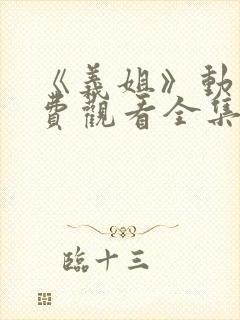 《義姐》動
費觀看全集
臨十三